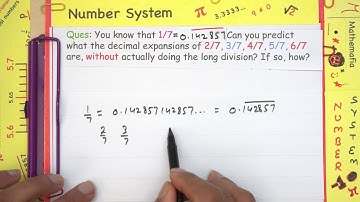 Number System
π
3.3333...
q ≠ 0
√5
Ques: You know that 1/7=0.1̅4̅2̅8̅5̅7̅ Can you predict
what the decimal expansions of 2/7, 3/7, 4/7, 5/7, 6/7
are, without actually doing the long division? If so, how?
1/7 = 0.142857142857... = 0.1̅4̅2̅8̅5̅7̅
2/7 3/7
5.6
Mathemafia
NUMBER
SYSTEM